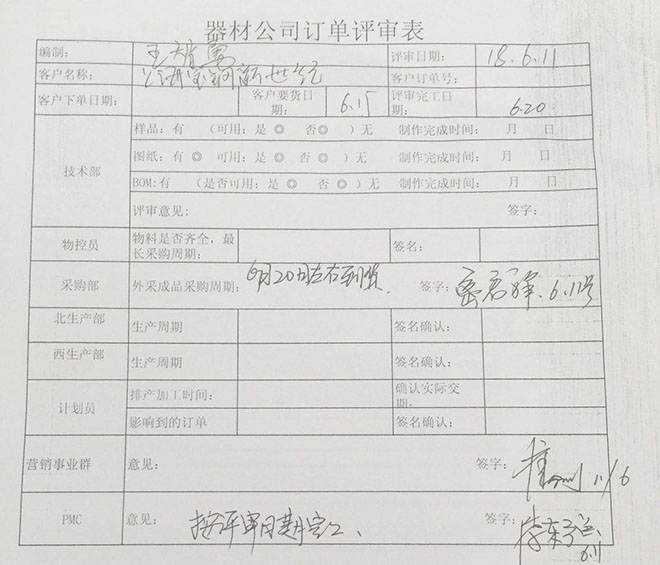 器材公司订单评审表
编制： 评审日期： 18.6.11
客户名称： 客户订单号：
客户下单日期： 客户要货日期： 6.15 评审完工日期： 6.20
技术部 样品：有 （可用：是◎ 否◎）无 制作完成时间： 月 日
图纸：有◎ 可用：是◎ 否◎）无 制作完成时间： 月 日
BOM：有 （是否可用：是◎ 否◎）无 制作完成时间： 月 日
评审意见： 签字：
物控员 物料是否齐全，最长采购周期： 签名：
采购部 外采成品采购周期： 6月20日左右到货 签字： 6.11号
北生产部 生产周期 签名确认：
西生产部 生产周期 签名确认：
计划员 排产加工时间： 确认实际交期：
影响到的订单 签名确认：
营销事业群 意见： 签字： 11/6
PMC 意见： 按评审日期完工、 签字： 6.11